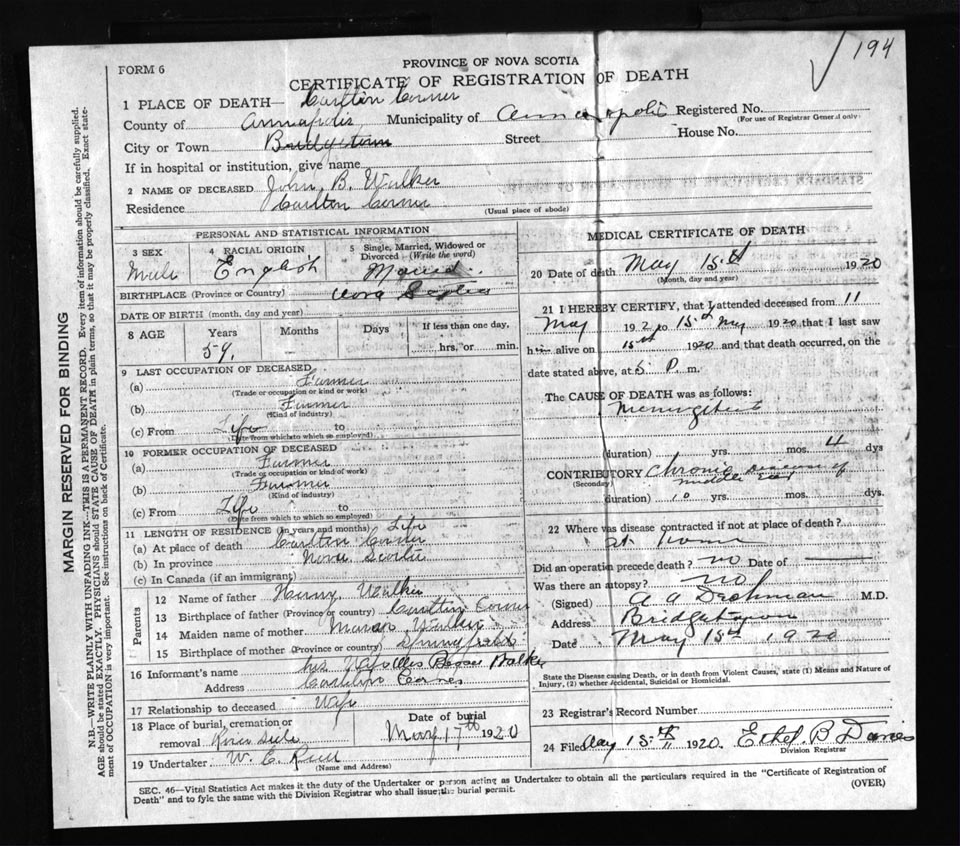 194
FORM 6
PROVINCE OF NOVA SCOTIA
CERTIFICATE OF REGISTRATION OF DEATH
1 PLACE OF DEATH— Carlton Corner
County of Annapolis Municipality of Annapolis Registered No.
(For use of Registrar General only)
City or Town Bridgetown Street House No.
If in hospital or institution, give name
2 NAME OF DECEASED John B. Walker
Residence Carlton Corner (Usual place of abode)
PERSONAL AND STATISTICAL INFORMATION
3 SEX Male
4 RACIAL ORIGIN English
5 Single, Married, Widowed or Divorced (Write the word) Married
BIRTHPLACE (Province or Country) Nova Scotia
DATE OF BIRTH (month, day and year)
8 AGE Years 59 Months Days If less than one day, hrs. or min.
9 LAST OCCUPATION OF DECEASED
(a) Farmer
(Trade or occupation or kind or work)
(b) Farmer
(Kind of industry)
(c) From Life to
(Date from which to which so employed)
10 FORMER OCCUPATION OF DECEASED
(a) Farmer
(Trade or occupation or kind of work)
(b) Farmer
(Kind of industry)
(c) From Life to
(Date from which to which so employed)
11 LENGTH OF RESIDENCE (in years and months) Life
(a) At place of death Carlton Corner
(b) In province Nova Scotia
(c) In Canada (if an immigrant)
Parents
12 Name of father Henry Walker
13 Birthplace of father (Province or country) Carlton Corner
14 Maiden name of mother Walker
15 Birthplace of mother (Province or country) Springfield
16 Informant's name his Wife Walker
Address Carlton Corner
17 Relationship to deceased Wife
18 Place of burial, cremation or removal
Date of burial May 17th 1920
19 Undertaker W. C.
(Name and Address)
MEDICAL CERTIFICATE OF DEATH
20 Date of death May 15th 1920
(Month, day and year)
21 I HEREBY CERTIFY, that I attended deceased from 11
May 192 to 15th May 1920 that I last saw
him alive on 15th 1920 and that death occurred, on the
date stated above, at 5 P. m.
The CAUSE OF DEATH was as follows:
(duration) yrs. mos. 4 dys
CONTRIBUTORY Chronic Disease of
(Secondary) middle Ear
(duration) 10 yrs. mos. dys.
22 Where was disease contracted if not at place of death?
at home
Did an operation precede death? no Date of
Was there an autopsy? no
(Signed) A A Dechman M.D.
Address Bridgetown
Date May 15th 1920
State the Disease causing Death, or in death from Violent Causes, state (1) Means and Nature of
Injury, (2) whether Accidental, Suicidal or Homicidal.
23 Registrar's Record Number
24 Filed May 15th 1920. Ethel B
Division Registrar
SEC. 46—Vital Statistics Act makes it the duty of the Undertaker or person acting as Undertaker to obtain all the particulars required in the "Certificate of Registration of
Death" and to fyle the same with the Division Registrar who shall issue the burial permit.
(OVER)
MARGIN RESERVED FOR BINDING
N.B.—WRITE PLAINLY WITH UNFADING INK—THIS IS A PERMANENT RECORD. Every item of information should be carefully supplied.
AGE should be stated EXACTLY. PHYSICIANS should STATE CAUSE OF DEATH in plain terms, so that it may be properly classified. Exact state-
ment of OCCUPATION is very important. See instructions on back of Certificate.